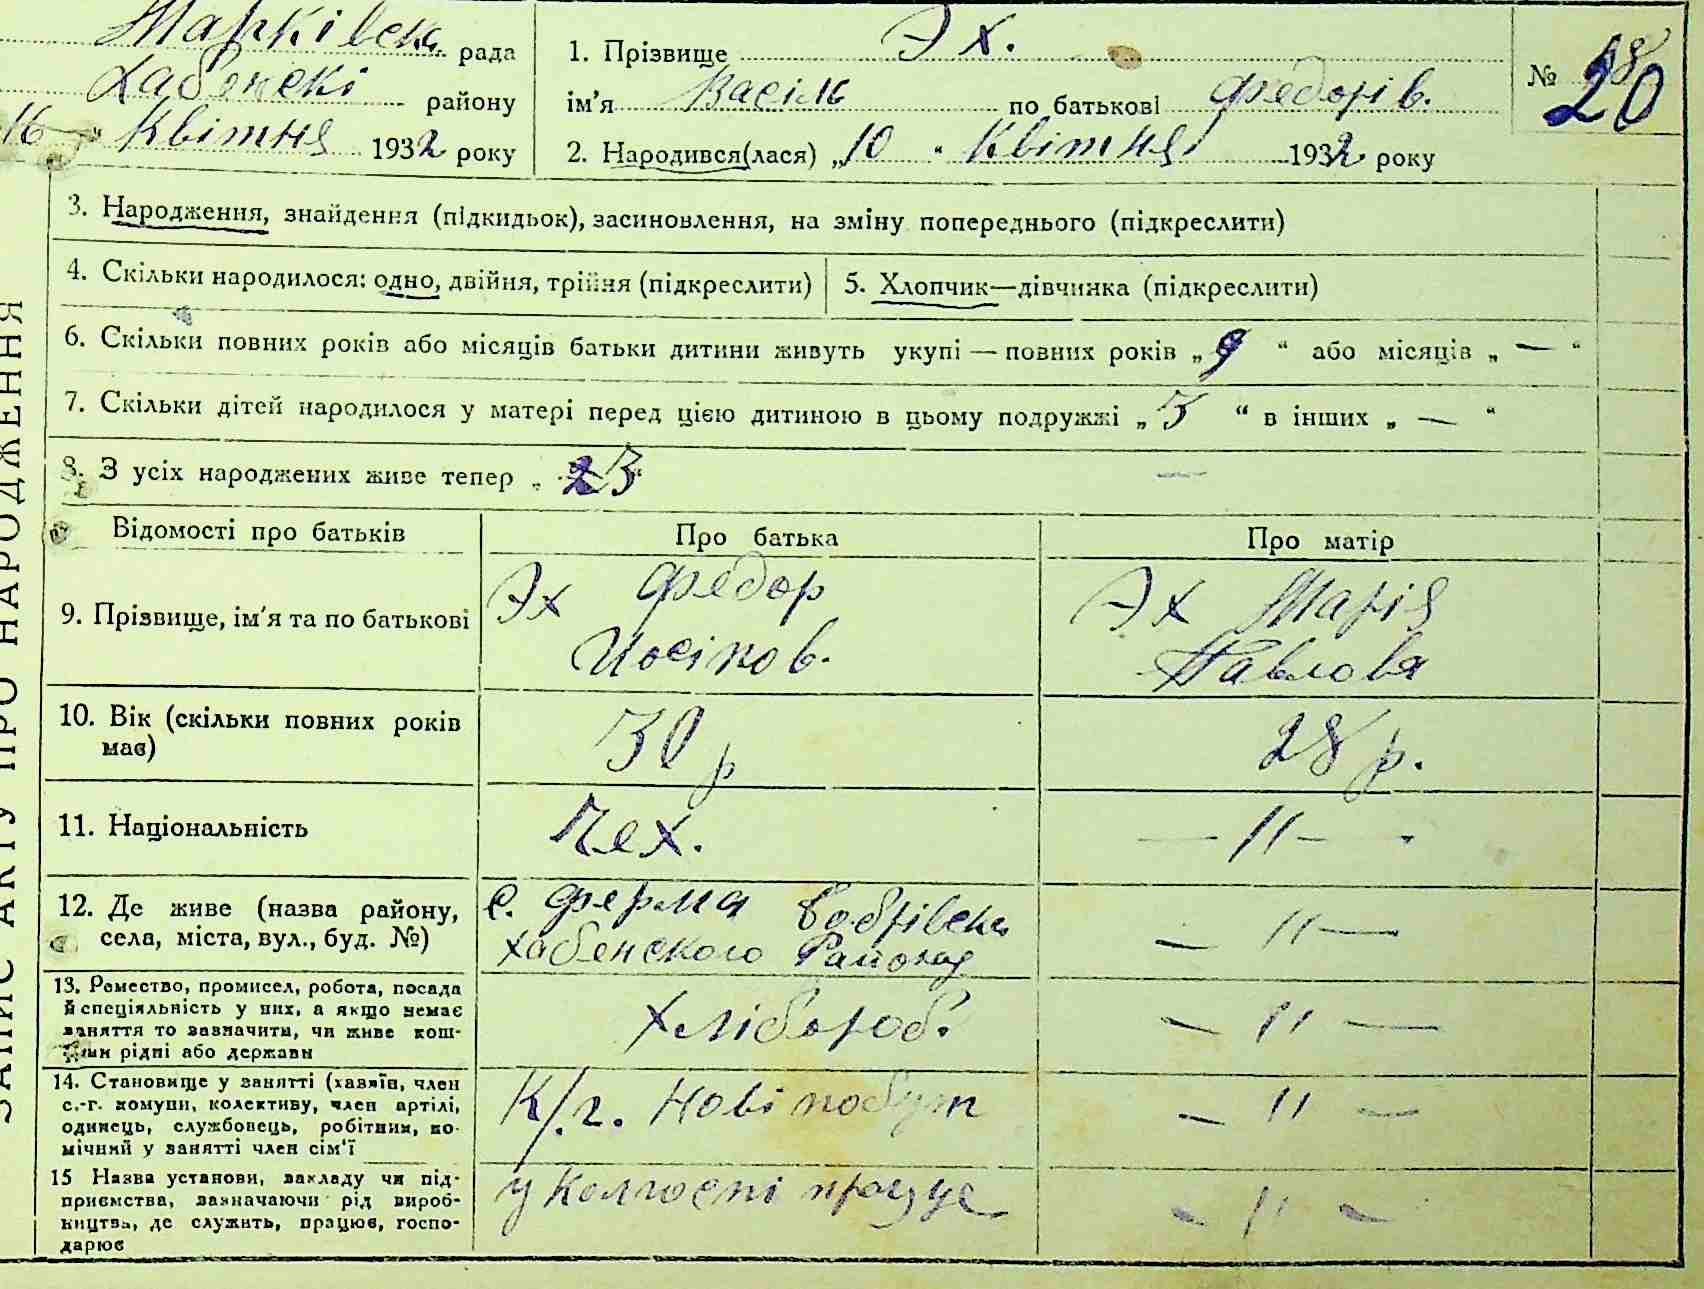 Марківська рада
Хабенскі району
16 " Квітня 1932 року
1. Прізвище Эх.
ім'я Васіль по батькові Федорів.
2. Народився(лася) „10 " Квітня 1932 року
№ 20
3. Народження, знайдення (підкидьок), засиновлення, на зміну попереднього (підкреслити)
4. Скільки народилося: одно, двійня, трійня (підкреслити)
5. Хлопчик—дівчинка (підкреслити)
6. Скільки повних років або місяців батьки дитини живуть укупі — повних років „ 9 “ або місяців „ — “
7. Скільки дітей народилося у матері перед цією дитиною в цьому подружжі „ 3 “ в інших „ — “
8. З усіх народжених живе тепер „ 3 “ —
ЗАПИС АКТУ ПРО НАРОДЖЕННЯ
Відомості про батьків
Про батька
Про матір
9. Прізвище, ім'я та по батькові
Эх Федор
Иосіпов.
Эх Марія
Павловя
10. Вік (скільки повних років
має)
30 р
28 р.
11. Національність
Чех.
— 〃 —
12. Де живе (назва району,
села, міста, вул., буд. №)
с. Ферма Бобрівська
Хабенского Району
— 〃 —
13. Ремество, промисел, робота, посада
й спеціяльність у них, а якщо немає
заняття то зазначити, чи живе кош-
тами рідні або держави
Хлібороб.
— 〃 —
14. Становище у занятті (хазяїн, член
с.-г. комуни, колективу, член артілі,
одинець, службовець, робітник, по-
мічний у занятті член сім'ї
К/г. Нові побут
— 〃 —
15 Назва установи, закладу чи під-
приємства, зазначаючи рід вироб-
ництва, де служить, працює, госпо-
дарює
у Колгоспі працує
— 〃 —